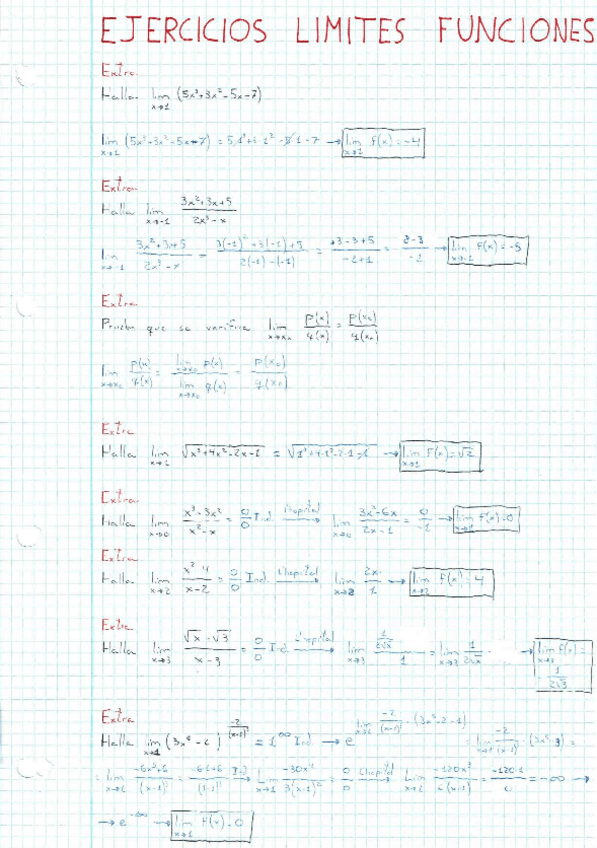 EJERCICIOS LIMITES FUNCIONES
Extra
Halla lim x→1 (5x³+3x²-5x-7)
lim x→1 (5x³+3x²-5x-7) = 5·1³+3·1²-5·1-7 → lim x→1 f(x)=-4
Extra
Halla lim x→-1 (3x²+3x+5)/(2x³-x)
lim x→-1 (3x²+3x+5)/(2x³-x) = (3(-1)²+3(-1)+5)/(2(-1)-(-1)) = (+3-3+5)/(-2+1) = → lim x→-1 f(x)=-5
Extra
Prueba que se verifica lim x→x₀ P(x)/q(x) = P(x₀)/q(x₀)
lim x→x₀ P(x)/q(x) = lim x→x₀ P(x)/lim x→x₀ q(x) = P(x₀)/q(x₀)
Extra
Halla lim x→1 √x³+4x²-2x-1 = √1³+4·1²-2·1-1 → lim x→1 f(x)=√2
Extra
Halla lim x→0 (x³-3x²)/(x²-x) = 0/0 Ind. L'hopital → lim x→0 (3x²-6x)/(2x-1) = 0/-1 → lim x→0 f(x)=0
Extra
Halla lim x→2 (x²-4)/(x-2) = 0/0 Ind. L'hopital → lim x→2 2x/1 → lim x→2 f(x)=4
Extra
Halla lim x→3 (√x-√3)/(x-3) = 0/0 Ind. L'hopital → lim x→3 (1/2√x)/1 = lim x→3 1/2√x → lim x→3 f(x)= 1/2√3
Extra
Halla lim x→1 = 1^∞ Ind. → e
L'hopital = -∞ →
→ e^-∞ → lim x→1 f(x)=0